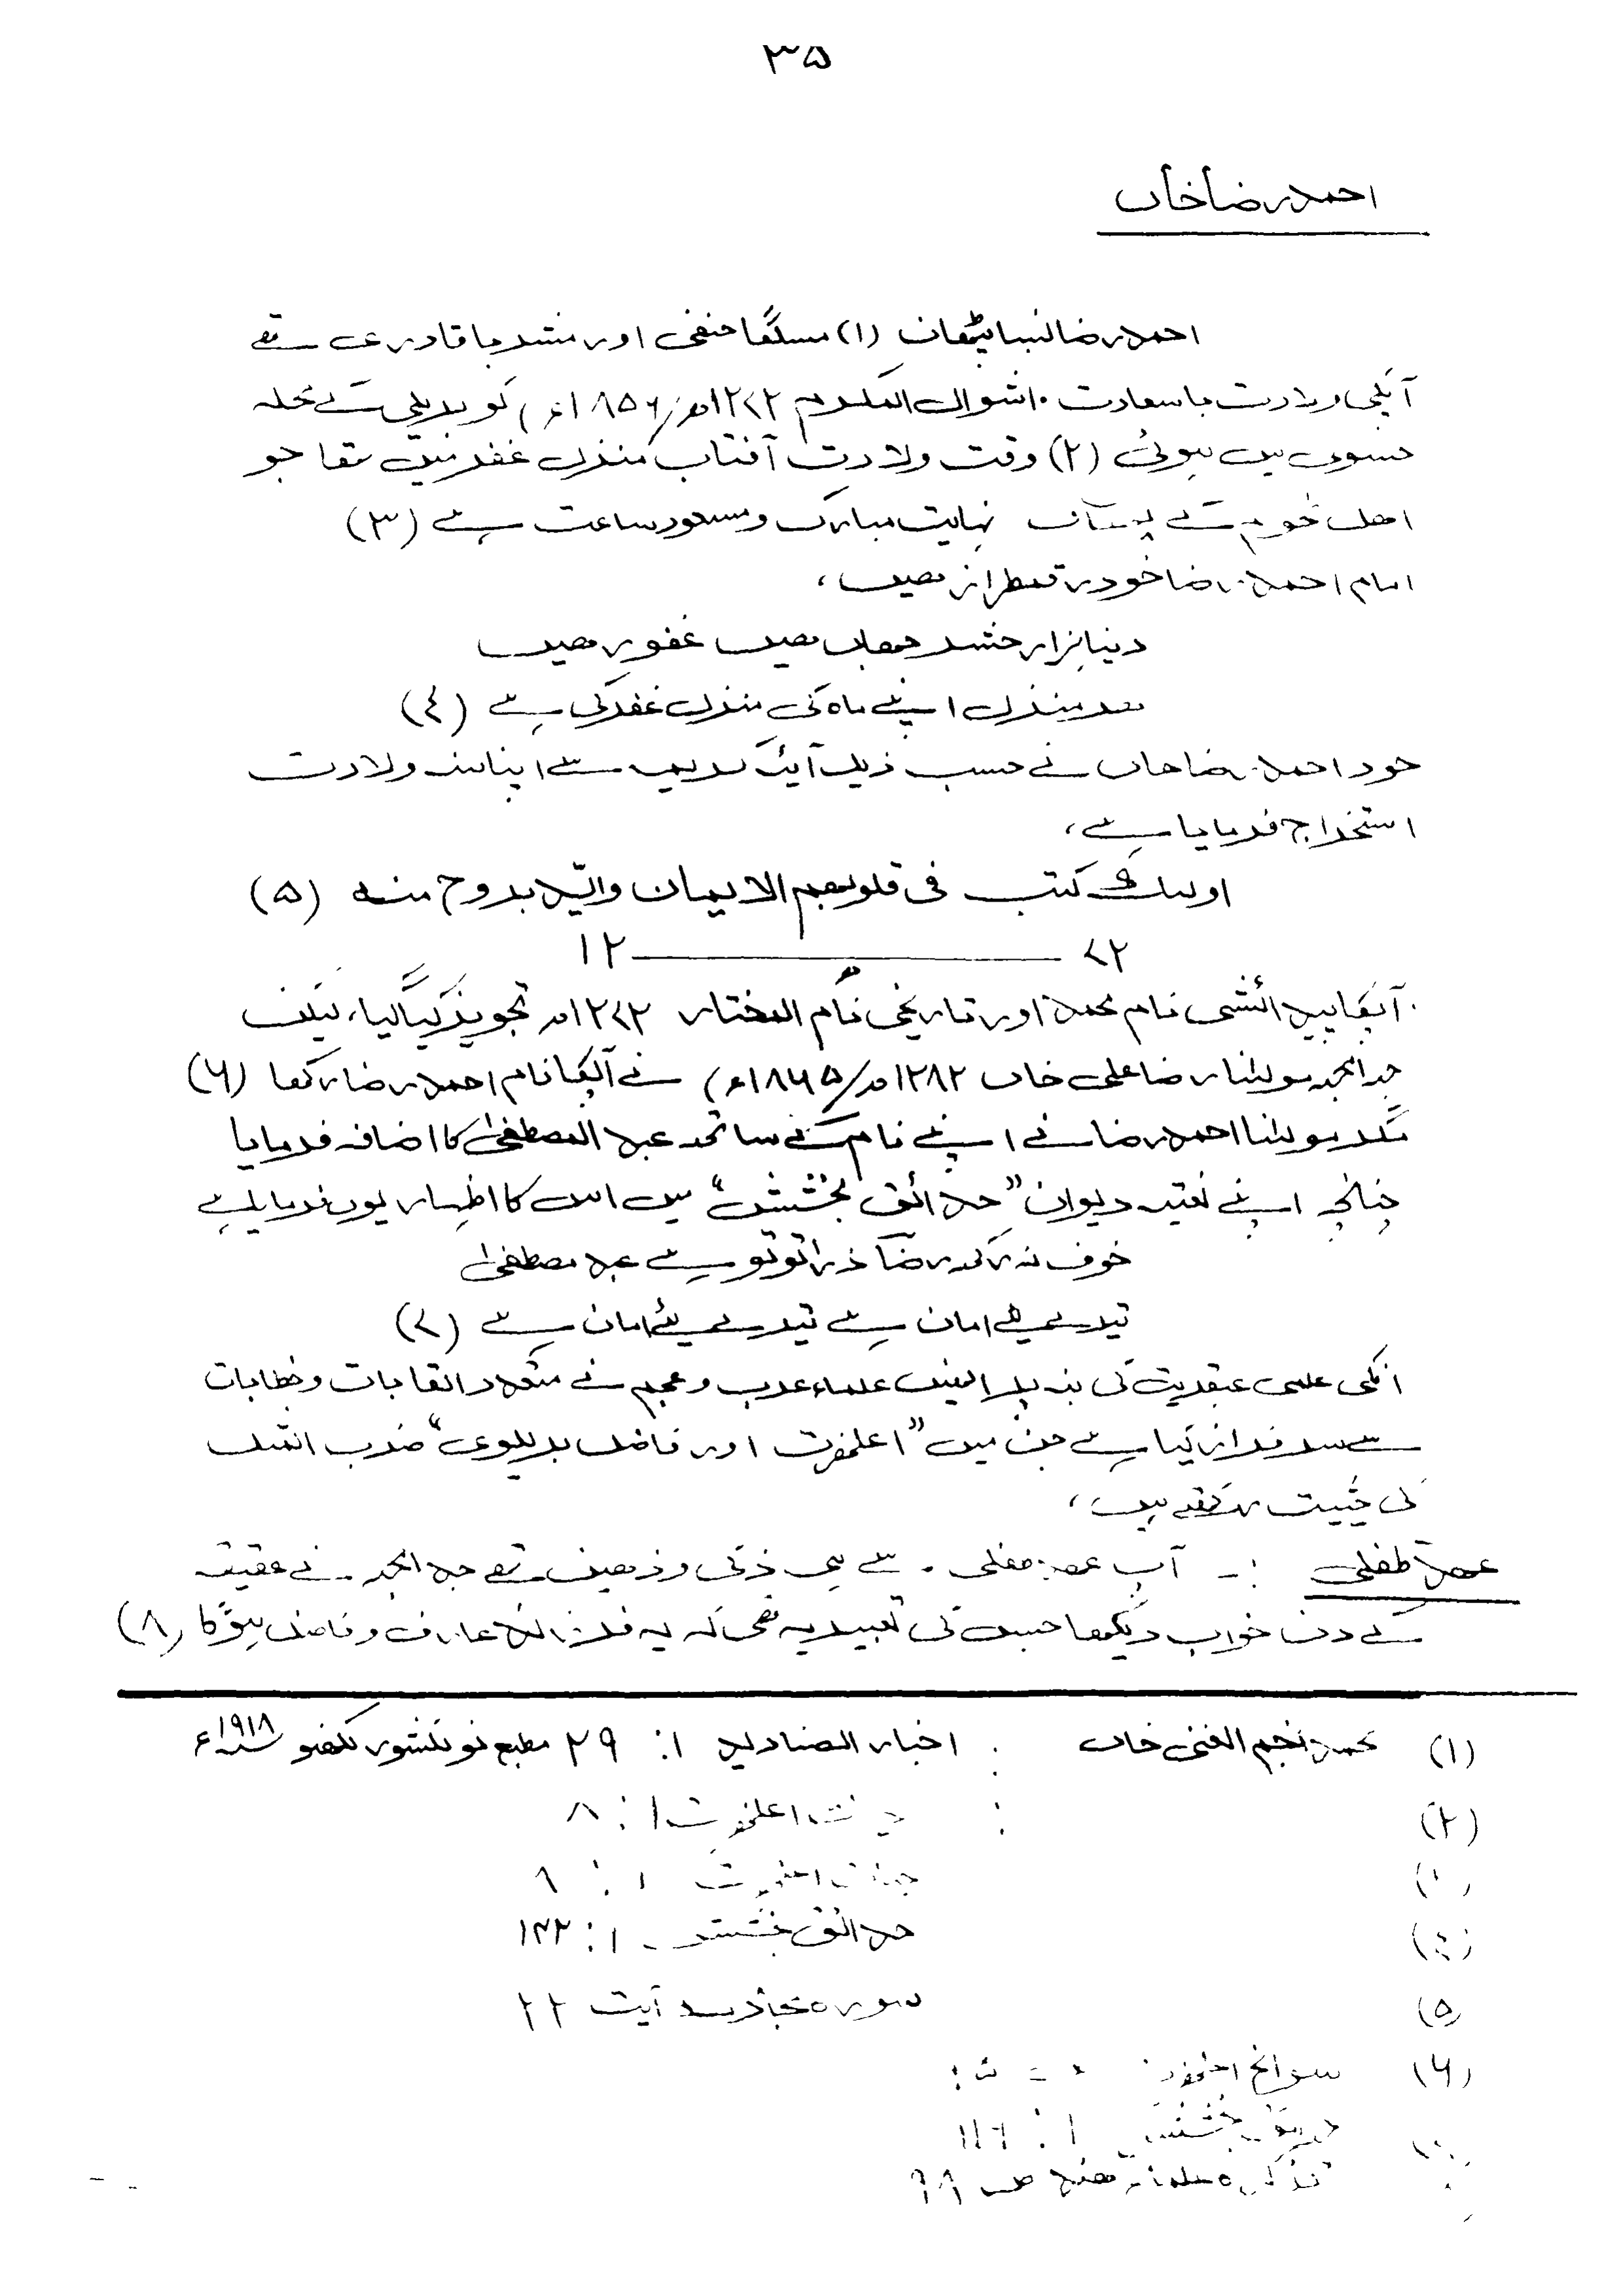 ۳۵
احمد رضا خاں
احمد رضا نسبا پٹھان (۱) مسلکًا حنفی اور مشربا قادری تھے
آپکی ولادت باسعادت ۱۰ شوال المکرم ۱۲۷۲ھ/۱۸۵۶ء) کو بریلی کے محلہ
جسولی میں ہوئی (۲) وقت ولادت آفتاب منزل غفر میں تھا جو
اھل نجوم کے یہاں نہایت مبارک و مسعود ساعت ہے (۳)
امام احمد رضا خود رقمطراز ھیں،
دنیا مزار حشر جہاں ھیں غفور ھیں
ھر منزل اپنے ماہ کی منزل غفر کی ہے (٤)
خود احمد رضا خاں نے حسب ذیل آیت کریمہ سے اپنا سنہ ولادت
استخراج فرمایا ہے،
اولئک کتب فی قلوبھم الایمان وایدہ بروح منہ (۵)
۷۲ ــــــــــــ ۱۲
آپکا پیدائشی نام محمد اور تاریخی نام المختار ۱۲۷۲ھ تجویز کیا گیا، لیکن
جد امجد مولٰنا رضا علی خاں ۱۲۸۲ھ/۱۸۶۵ء) نے آپکا نام احمد رضا رکھا (۶)
مگر مولٰنا احمد رضا نے اپنے نام کے ساتھ عبد المصطفیٰ کا اضافہ فرمایا
چنانچہ اپنے نعتیہ دیوان ”حدائق بخشش“ میں اس کا اظہار یوں فرمایا ہے
خوف نہ رکھ رضا ذرا تو تو ہے عبد مصطفیٰ
تیرے لئے امان ہے تیرے لئے امان ہے (۷)
انکی علمی عبقریت کی بنا پر انھیں علماء عرب و عجم نے متعدد القابات و خطابات
سے سرفراز کیا ہے جن میں ”اعلحضرت اور فاضل بریلوی“ ضرب المثل
کی حیثیت رکھتے ہیں،
عھد طفلی :ـ آپ عھد طفلی سے ہی ذکی و ذھین تھے جد امجد نے عقیقہ
کے دن خواب دیکھا جس کی تعبیر یہ تھی کہ یہ فرزند عارف و فاضل ہوگا (۸)
(۱) محمد نجم الغنی خاں : اخبار الصنادید ۱: ۲۹ مطبع نو لکشور لکھنو ۱۹۱۸ء
(۲) : حیات اعلحضرت ۱: ۸
حیات اعلحضرت ۱:
حدائق بخشش ۱: ۱۴۲
(۵) سورہ مجادلہ آیت ۲۲
(۶) سوانح اعلحضرت
حدائق بخشش ۱:
تذکرہ علمائے ھند ص